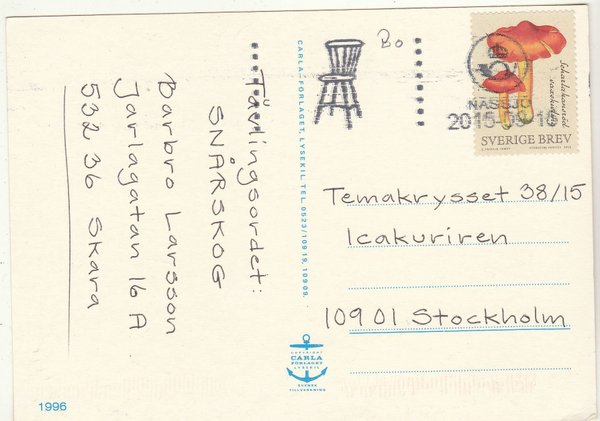 Tävlingsordet:
SNÅRSKOG
Barbro Larsson
Jarlagatan 16 A
532 36 Skara
CARLA-FÖRLAGET, LYSEKIL TEL. 0523/109 19, 109 09.
Bo
NÄSSJÖ
SVERIGE BREV
Temakrysset 38/15
Icakuriren
109 01 Stockholm
COPYRIGHT
CARLA
FÖRLAGET
LYSEKIL
SVENSK
TILLVERKNING
1996